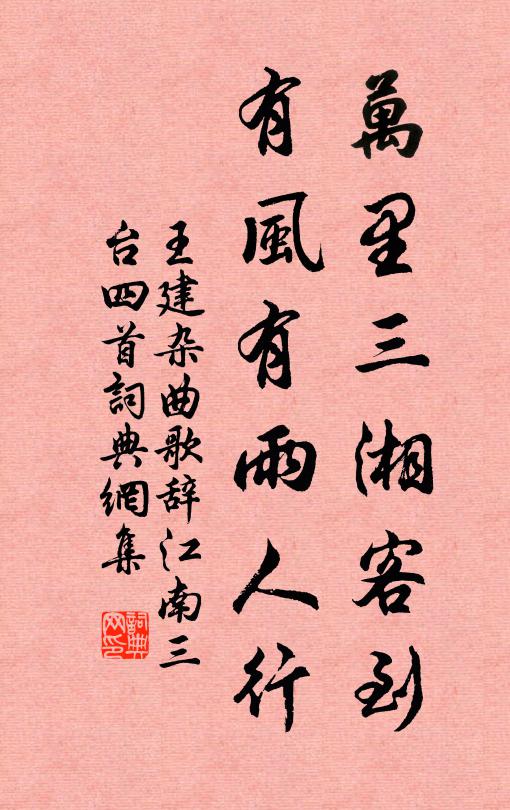 萬里三湘客到
有風有雨人行
王建杂曲歌辞江南三
台四首詞典網集
詞典网印